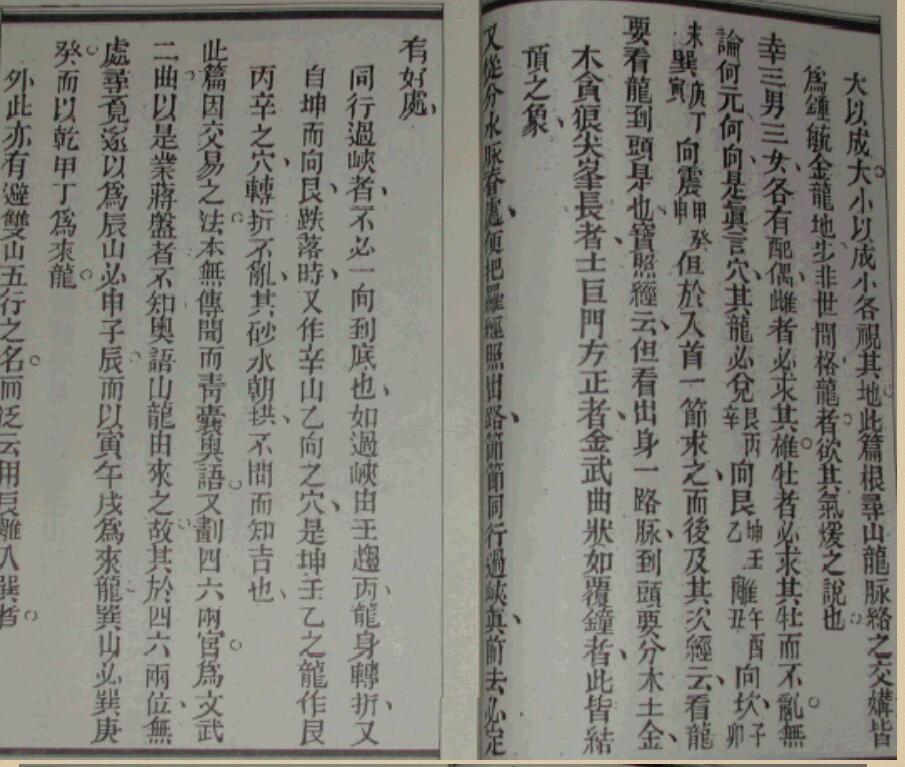 大以成大小以成小各視其地此篇根尋山龍脈絡之交媾皆
爲鍾毓金龍地步非世間格龍者欲其氣煖之說也
幸三男三女各有配偶雌者必求其雄牡者必求其牡而不亂無
論何元何向是眞言穴其龍必兌艮丙辛向艮坤壬乙離午酉丑向坎子卯
未巽庚丁寅向震甲癸申但於入首一節求之而後及其次經云看龍
要看龍到頭是也寶照經云但看出身一路脈到頭要分水土金
木貪狼尖峯長者土巨門方正者金武曲狀如覆鐘者此皆結
頂之象
又從分水脈脊處便把羅經照出路節節同行過峽眞前去必定
有好處
同行過峽者不必一向到底也如過峽由壬趨丙龍身轉折又
自坤而向艮跌落時又作辛山乙向之穴是坤壬乙之龍作艮
丙辛之穴轉折不亂其砂水朝拱不問而知吉也
此篇因交易之法本無傳聞而靑囊奧語又劃四六兩宮爲文武
二曲以是業蔣盤者不知奧語山龍由來之故其於四六兩位無
處尋覓遂以爲辰山必申子辰而以寅午戌爲來龍巽山必巽庚
癸而以乾甲丁爲來龍
外此亦有避雙山五行之名而泛云用辰離八巽者